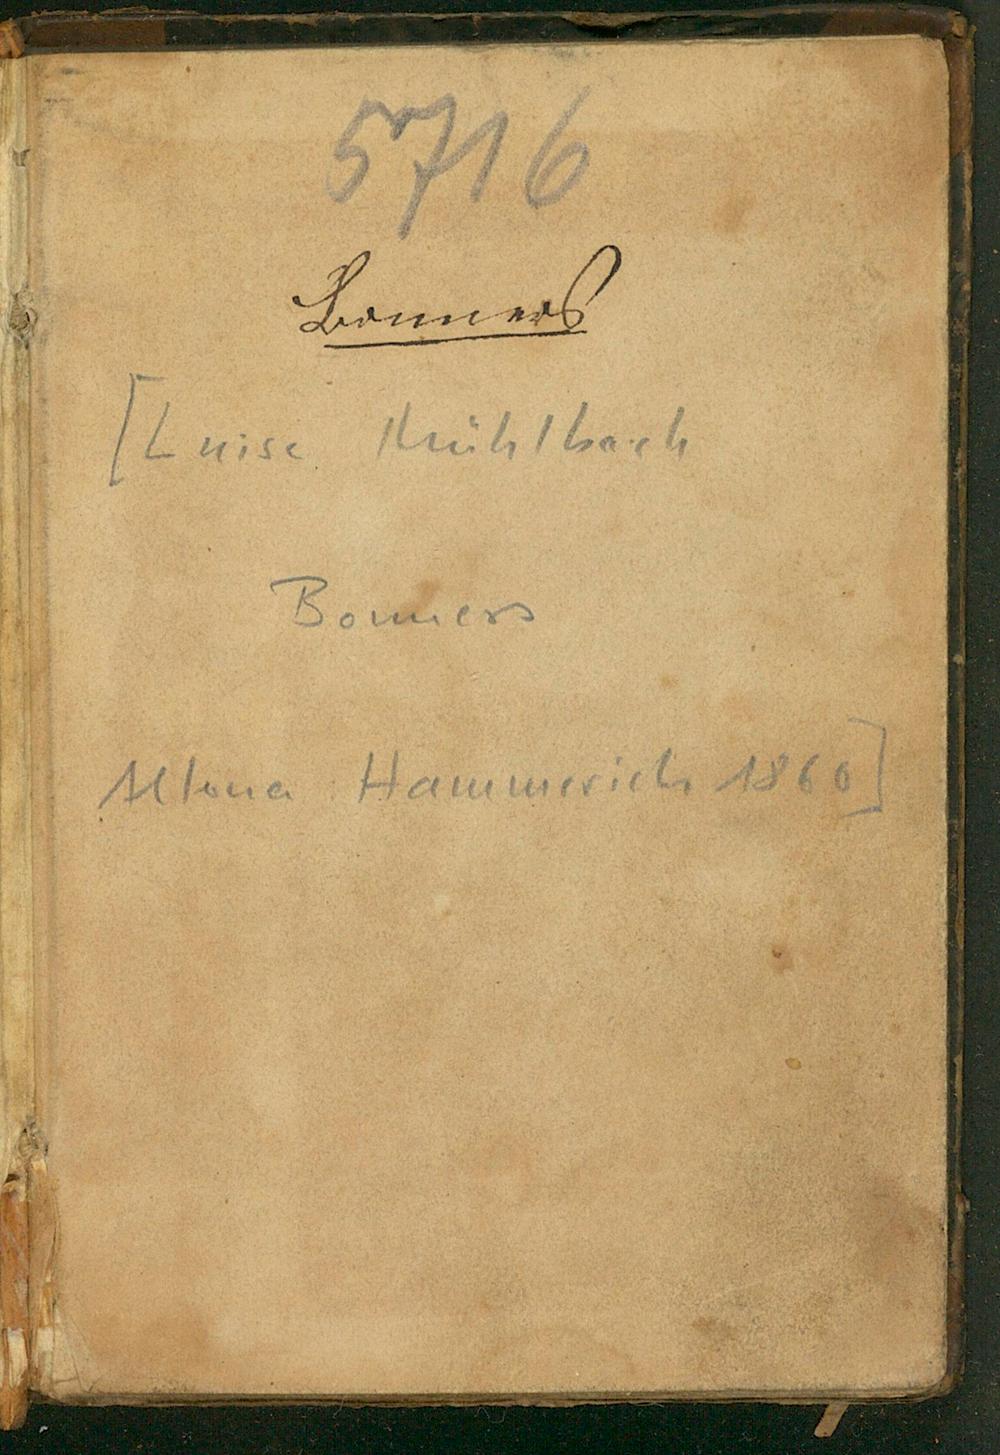 5716
Bonners
[Luise Mühlbach
Bonners
Altona Hammerich 1860]